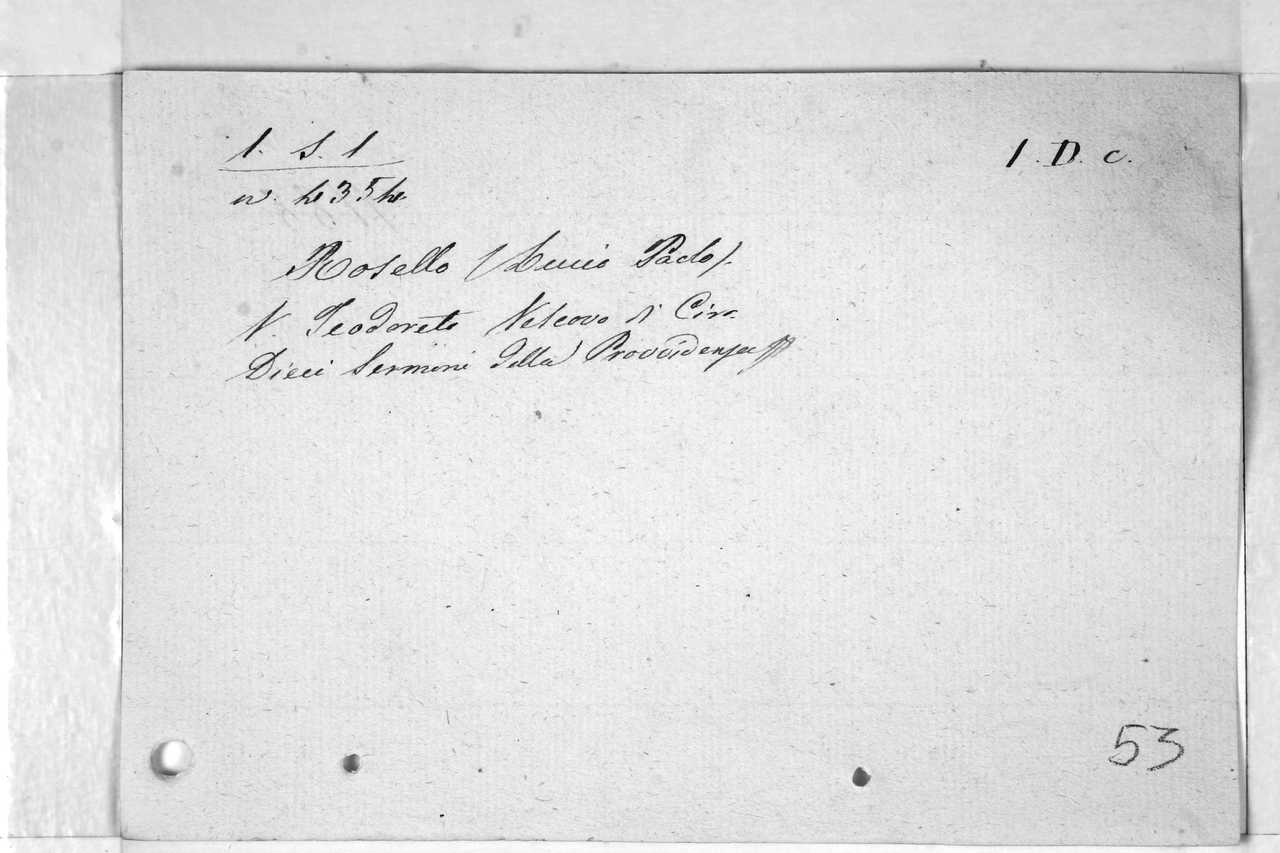 1. S. 1
1. D. c.
n. 4354
Rosello (Lucio Paolo).
V. Teodoreto Vescovo di Ciro.
Dieci Sermoni della Provvidenza
53